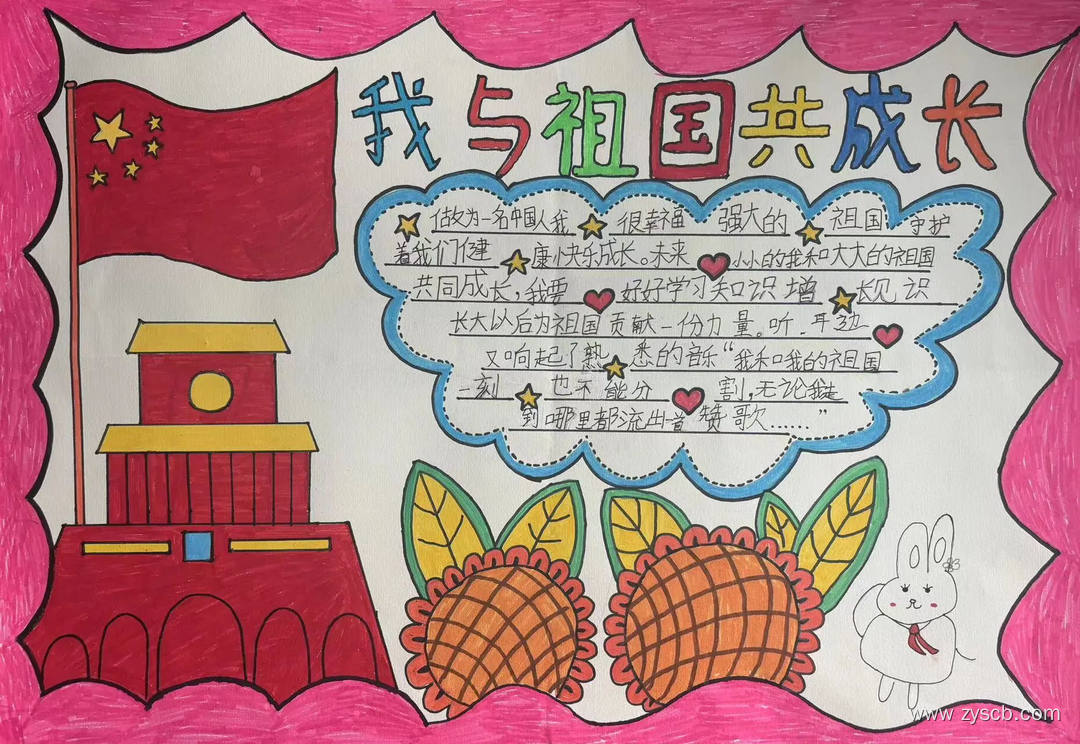 我与祖国共成长
做为一名中国人我很幸福 强大的祖国守护
着我们健康快乐成长。未来小小的我和大大的祖国
共同成长,我要好好学习知识增长见识
长大以后为祖国贡献一份力量。听,耳边
又响起了熟悉的音乐“我和我的祖国
一刻也不能分割,无论我走
到哪里都流出一首赞歌......”
www.zyscb.com